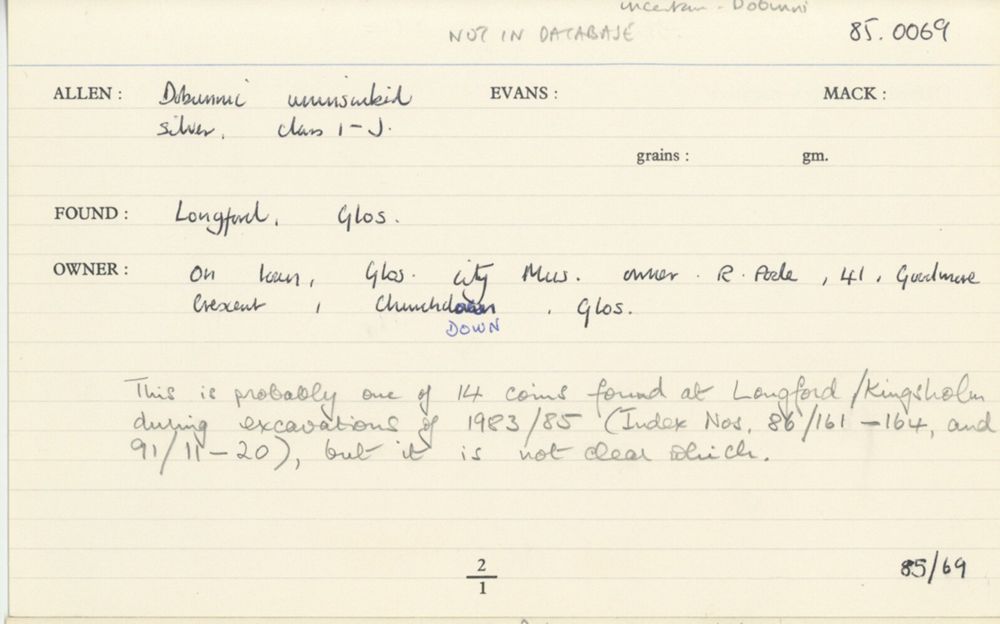 uncertain - Dobunni
NOT IN DATABASE 85.0069
ALLEN : Dobunnic uninscribed EVANS : MACK :
silver, class I-J.
grains : gm.
FOUND : Longford, Glos.
OWNER : On loan, Glos. City Mus. owner R. Poole, 41,
Crescent, Churchdown, Glos.
DOWN
This is probably one of 14 coins found at Longford/Kingsholm
during excavations of 1983/85 (Index Nos. 86/161-164, and
91/11-20), but it is not clear which.
2
1
85/69